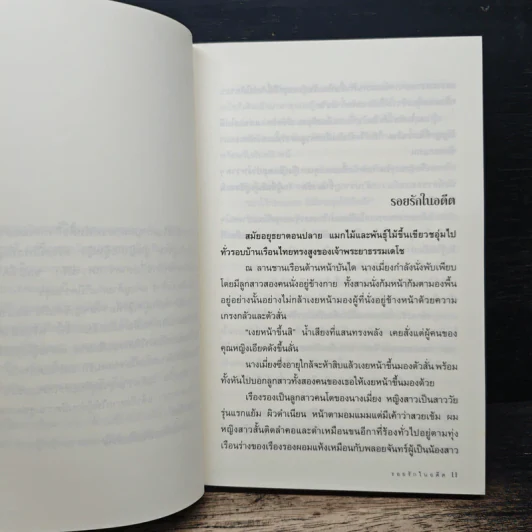 รอยรักในอดีต
สมัยอยุธยาตอนปลาย แมกไม้และพันธุ์ไม้ขึ้นเขียวชอุ่มไป
ทั่วรอบบ้านเรือนไทยทรงสูงของเจ้าพระยาธรรมเดโช
ณ ลานชานเรือนด้านหน้าบันได นางเมี่ยงกำลังนั่งพับเพียบ
โดยมีลูกสาวสองคนนั่งอยู่ข้างกาย ทั้งสามนั่งก้มหน้าก้มตามองพื้น
อยู่อย่างนั้นอย่างไม่กล้าเงยหน้ามองผู้ที่นั่งอยู่ข้างหน้าด้วยความ
เกรงกลัวและตัวสั่น
"เงยหน้าขึ้นสิ" น้ำเสียงที่แสนทรงพลัง เคยสั่งแต่ผู้คนของ
คุณหญิงเอียดดังขึ้นลั่น
นางเมี่ยงซึ่งอายุใกล้จะห้าสิบแล้วเงยหน้าขึ้นมองตัวสั่น พร้อม
ทั้งหันไปบอกลูกสาวทั้งสองคนของเธอให้เงยหน้าขึ้นมองด้วย
เรืองรองเป็นลูกสาวคนโตของนางเมี่ยง หญิงสาวเป็นสาววัย
รุ่นแรกแย้ม ผิวดำเนียน หน้าตามอมแมมแต่มีเค้าว่าสวยเข้ม ผม
หญิงสาวสั้นติดลำคอและดำเหมือนขนอีกาที่ร้องทั่วไปอยู่ตามทุ่ง
เรือนร่างของเรืองรองผอมแห้งเหมือนกับพลอยจันทร์ผู้เป็นน้องสาว
รอยรักในอดีต 11